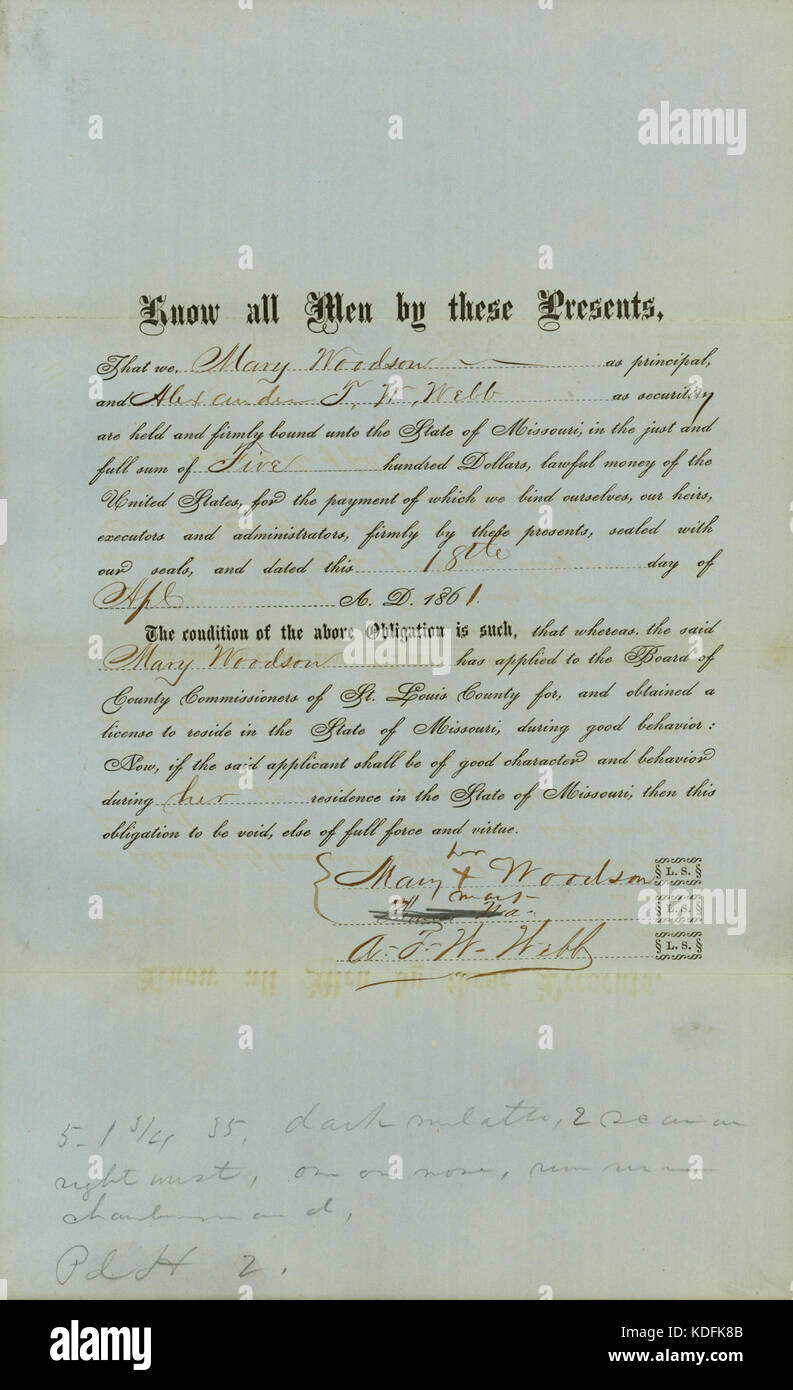 Know all Men by these Presents,
That we, Mary Woodson as principal,
and Alexander T. W. Webb as security
are held and firmly bound unto the State of Missouri, in the just and
full sum of Five hundred Dollars, lawful money of the
United States, for the payment of which we bind ourselves, our heirs,
executors and administrators, firmly by these presents, sealed with
our seals, and dated this 18th day of
Apl A. D. 1861.
The condition of the above Obligation is such, that whereas, the said
Mary Woodson has applied to the Board of
County Commissioners of St. Louis County for, and obtained a
license to reside in the State of Missouri, during good behavior:
Now, if the said applicant shall be of good character and behavior
during her residence in the State of Missouri, then this
obligation to be void, else of full force and virtue.
her
Mary X Woodson L. S.
mark
L. S.
A. T. W. Webb L. S.
5-1 3/4, 35, dark mulatto, 2 scar on
right wrist, one on nose,
chambermaid,
Pd H 2.
a alamy
alamy
Image ID: KDFK8B
www.alamy.com